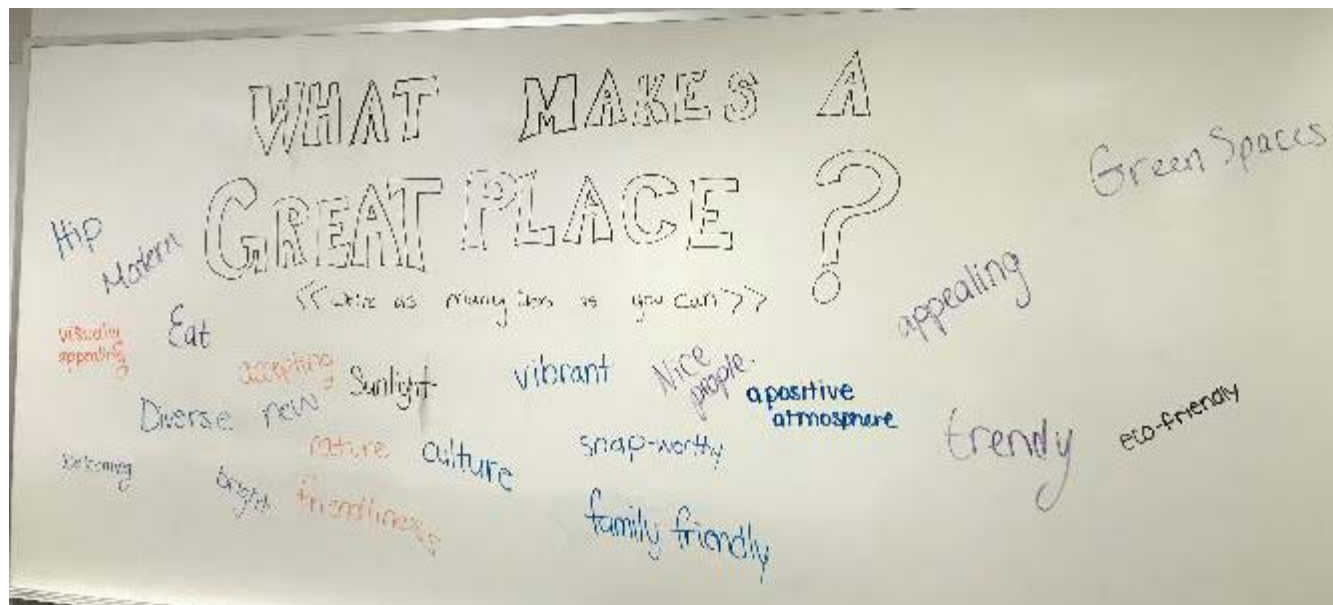 WHAT MAKES A
GREAT PLACE ?
<<write as many as you can>>
Hip
Modern
Green Spaces
visually
appealing
Eat
appealing
accepting
Sunlight
vibrant
Nice
people.
a positive
atmosphere
Diverse
new
nature
culture
snap-worthy
trendy
eco-friendly
welcoming
bright
friendliness
family friendly